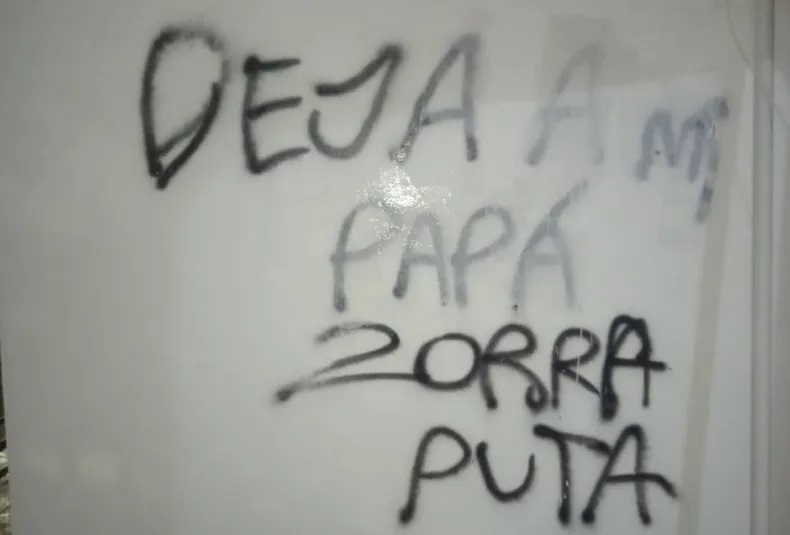 DEJA A Mi
PAPÁ
ZORRA
PUTA